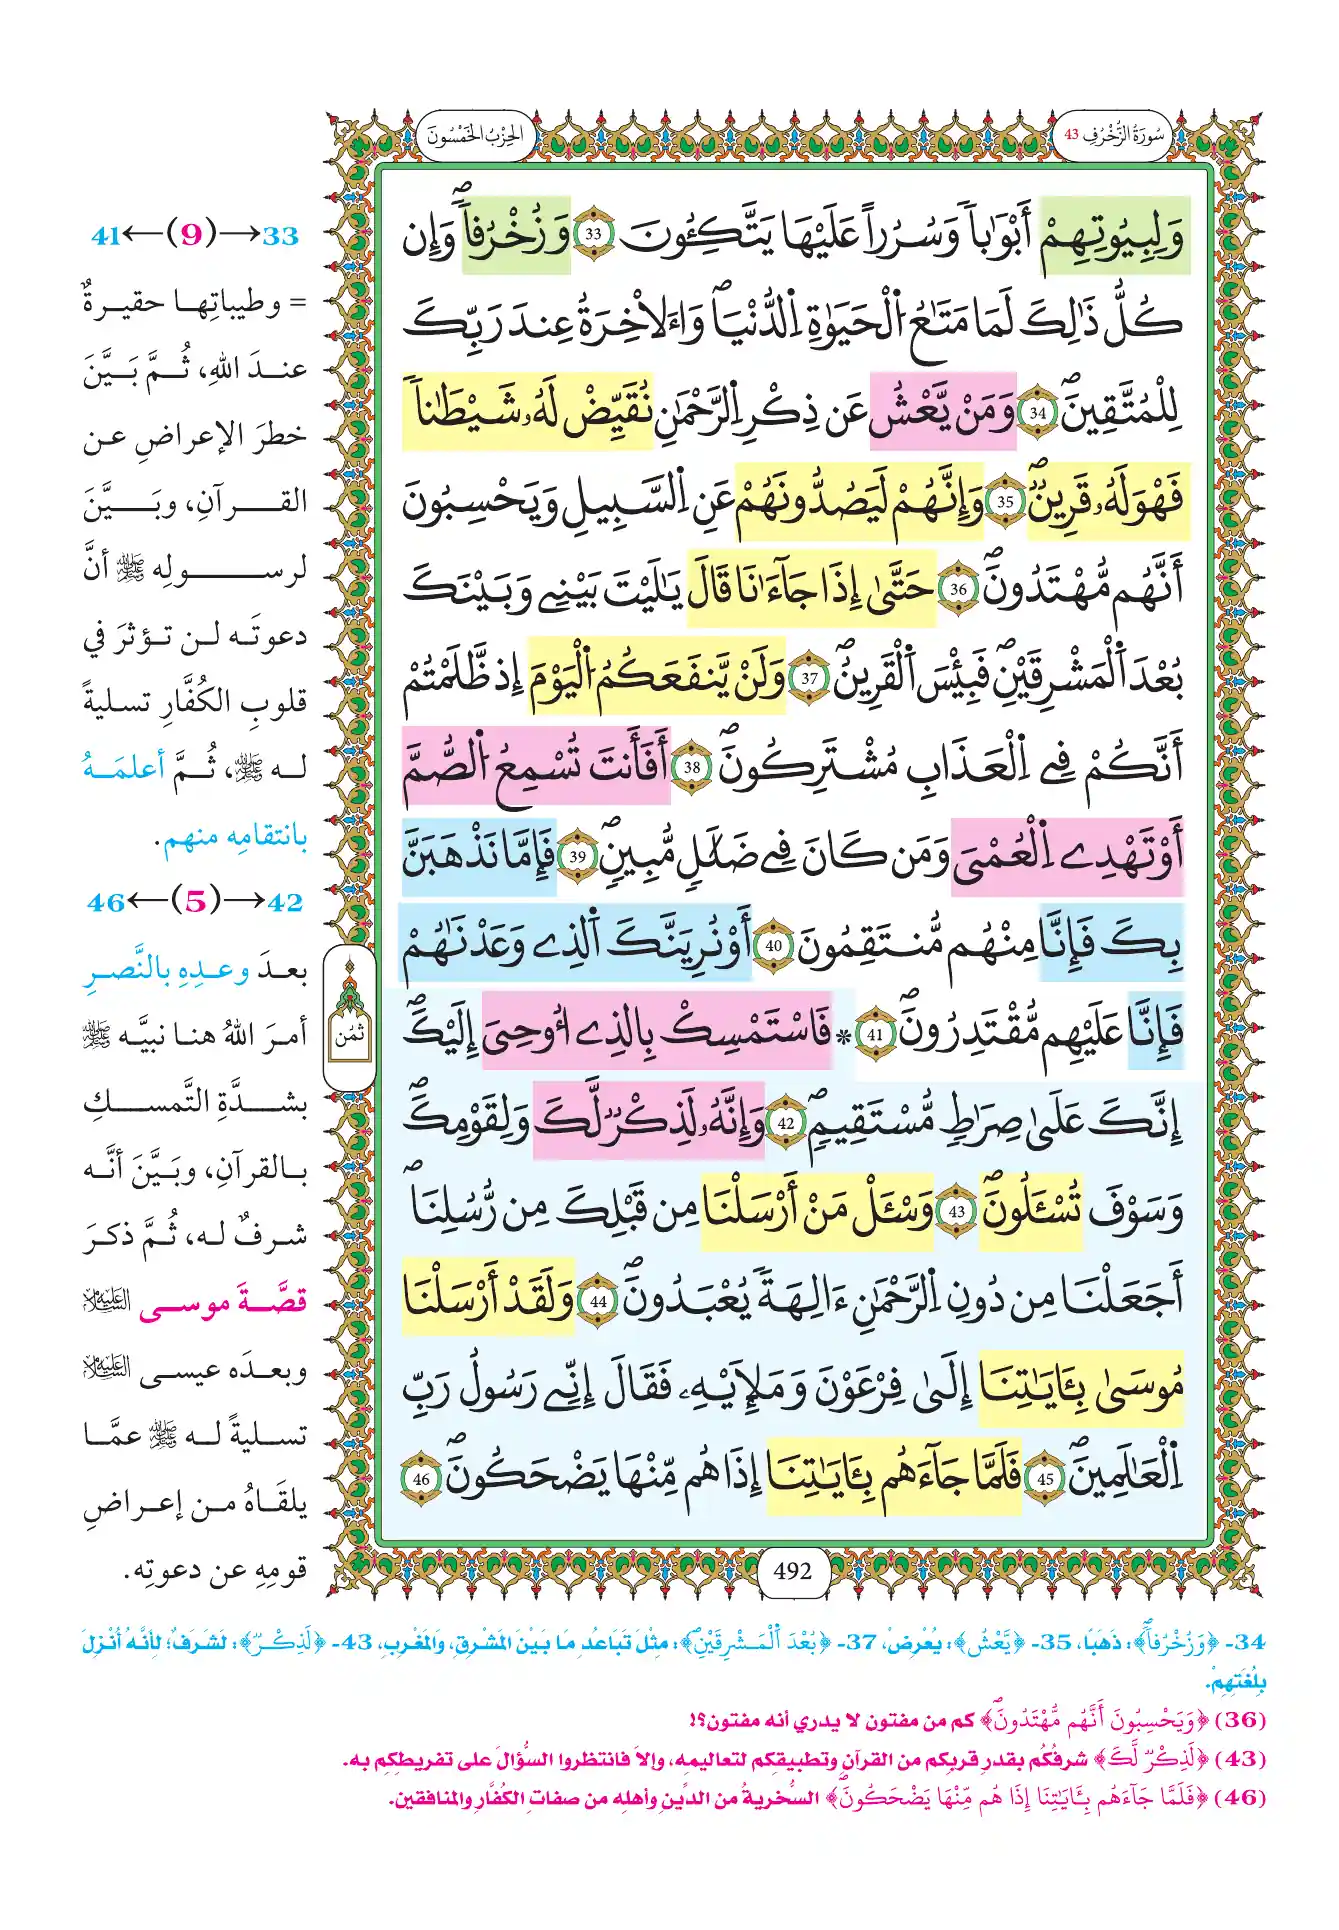 سُورَةُ الزُّخْرُفِ 43
الحِزْبُ الخَمْسُونَ
وَلِبِيُوتِهِمْ أَبْوَٰباٗ وَسُرُراً عَلَيْهَا يَتَّكِـُٔونَ 33 وَزُخْرُفاٗۖ وَإِن
كُلُّ ذَٰلِكَ لَمَا مَتَٰعُ اُ۬لْحَيَوٰةِ اِ۬لدُّنْي۪اۖ وَالَاخِرَةُ عِندَ رَبِّكَ
لِلْمُتَّقِينَۖ 34 وَمَنْ يَّعْشُ عَن ذِكْرِ اِ۬لرَّحْمَٰنِ نُقَيِّضْ لَهُۥ شَيْطَٰناٗ
فَهُوَ لَهُۥ قَرِينٞۖ 35 وَإِنَّهُمْ لَيَصُدُّونَهُمْ عَنِ اِ۬لسَّبِيلِ وَيَحْسِبُونَ
أَنَّهُم مُّهْتَدُونَۖ 36 حَتَّىٰ إِذَا جَآءَٰنَا قَالَ يَٰلَيْتَ بَيْنِے وَبَيْنَكَ
بُعْدَ اَ۬لْمَشْرِقَيْنِۖ فَبِيْسَ اَ۬لْقَرِينُۖ 37 وَلَنْ يَّنفَعَكُمُ اُ۬لْيَوْمَ إِذ ظَّلَمْتُمْ
أَنَّكُمْ فِے اِ۬لْعَذَابِ مُشْتَرِكُونَۖ 38 أَفَأَنتَ تُسْمِعُ اُ۬لصُّمَّ
أَوْ تَهْدِے اِ۬لْعُمْىَ وَمَن كَانَ فِے ضَلَٰلٖ مُّبِينٖۖ 39 فَإِمَّا نَذْهَبَنَّ
بِكَ فَإِنَّا مِنْهُم مُّنتَقِمُونَ 40 أَوْ نُرِيَنَّكَ اَ۬لذِے وَعَدْنَٰهُمْ
فَإِنَّا عَلَيْهِم مُّقْتَدِرُونَۖ 41 * فَاسْتَمْسِكْ بِالذِے أُوحِيَ إِلَيْكَۖ
إِنَّكَ عَلَىٰ صِرَٰطٖ مُّسْتَقِيمٖۖ 42 وَإِنَّهُۥ لَذِكْرٞ لَّكَ وَلِقَوْمِكَۖ
وَسَوْفَ تُسْـَٔلُونَۖ 43 وَسْـَٔلْ مَنَ اَرْسَلْنَا مِن قَبْلِكَ مِن رُّسُلِنَاۖ
أَجَعَلْنَا مِن دُونِ اِ۬لرَّحْمَٰنِ ءَالِهَةٗ يُعْبَدُونَۖ 44 وَلَقَدَ اَرْسَلْنَا
مُوسَىٰ بِـَٔايَٰتِنَا إِلَىٰ فِرْعَوْنَ وَمَلَإِيْهِۦ فَقَالَ إِنِّے رَسُولُ رَبِّ
اِ۬لْعَٰلَمِينَۖ 45 فَلَمَّا جَآءَهُم بِـَٔايَٰتِنَا إِذَا هُم مِّنْهَا يَضْحَكُونَۖ 46
ثمُن
492
33→(9)←41
= وطيباتِها حقيرةٌ
عندَ اللهِ، ثُمَّ بَيَّنَ
خطرَ الإعراضِ عن
القرآنِ، وبَيَّنَ
لرسولِه ﷺ أنَّ
دعوتَه لن تؤثرَ في
قلوبِ الكُفَّارِ تسليةً
له ﷺ، ثُمَّ أعلمَهُ
بانتقامِه منهم.
42→(5)←46
بعدَ وعدِهِ بالنَّصرِ
أمرَ اللهُ هنا نبيَّه ﷺ
بشدَّةِ التَّمسكِ
بالقرآنِ، وبَيَّنَ أنَّه
شرفٌ له، ثُمَّ ذكرَ
قصَّةَ موسى عليه السلام
وبعدَه عيسى عليه السلام
تسليةً له ﷺ عمَّا
يلقَاهُ من إعراضِ
قومِهِ عن دعوتِه.
34- ﴿وَزُخْرُفاٗۖ﴾: ذَهَبًا، 35- ﴿يَّعْشُ﴾: يُعْرِضْ، 37- ﴿بُعْدَ اَ۬لْمَشْرِقَيْنِ﴾: مِثْلَ تَبَاعُدِ مَا بَيْنَ المَشْرِقِ، وَالمَغْرِبِ، 43- ﴿لَذِكْرٞ﴾: لَشَرَفٌ؛ لِأَنَّهُ أُنْزِلَ
بِلُغَتِهِمْ.
(36) ﴿وَيَحْسِبُونَ أَنَّهُم مُّهْتَدُونَۖ﴾ كم من مفتون لا يدري أنه مفتون؟!
(43) ﴿لَذِكْرٞ لَّكَ﴾ شرفُكُم بقدرِ قربِكم من القرآنِ وتطبيقِكم لتعاليمِه، وإلا فانتظروا السؤالَ على تفريطِكم به.
(46) ﴿فَلَمَّا جَآءَهُم بِـَٔايَٰتِنَا إِذَا هُم مِّنْهَا يَضْحَكُونَۖ﴾ السُّخريةُ من الدِّينِ وأهلِه من صفاتِ الكُفَّارِ والمنافقين.